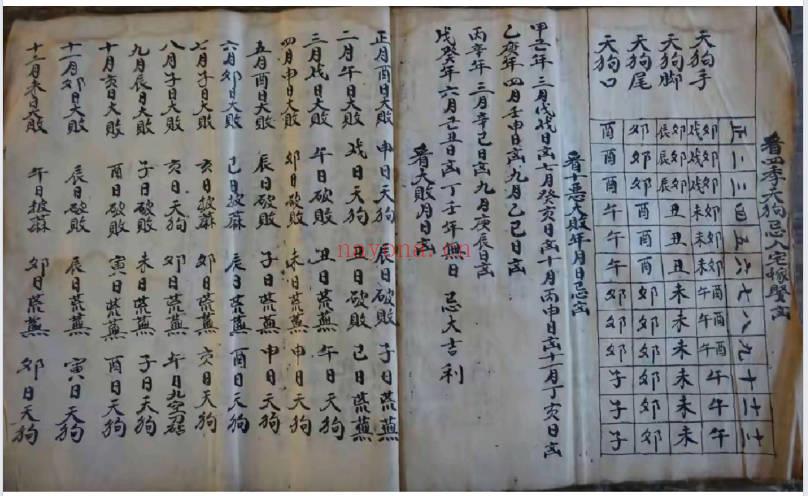 看四季天狗忌入宅嫁娶凶
正 二 三 四 五 六 七 八 九 十 十一 十二
天狗手 戌卯 戌卯 戌卯 未卯 未卯 未卯 午酉 午酉 午酉 午 午 午
天狗脚 辰卯 辰卯 辰卯 丑 丑 丑 未 未 未 未 未 未
天狗尾 卯 卯 卯 酉 酉 酉 卯 卯 卯 卯 卯 卯
天狗口 酉 酉 酉 午 午 午 卯 卯 卯 子 子 子
看十恶大敗年月日忌凶
甲己年三月戊戌日凶七月癸亥日凶十月丙申日凶十一月丁亥日凶
乙庚年四月壬申日凶九月乙巳日凶
丙辛年三月辛巳日凶九月庚辰日凶
戊癸年六月己丑日凶丁壬年無日忌大吉利
看大敗月日凶
正月酉日大敗 申日天狗 辰日破敗 子日荒蕪
二月午日大敗 戌日天狗 丑日破敗 巳日荒蕪
三月戌日大敗 午日破敗 丑日荒蕪 午日天狗
四月申日大敗 卯日破敗 未日荒蕪 申日天狗
五月酉日大敗 辰日破敗 子日荒蕪 申日天狗
六月卯日大敗 巳日披蔴 辰日荒蕪 酉日天狗
七月子日大敗 亥日披蔴 卯日荒蕪 亥日天狗
八月子日大敗 亥日天狗 卯日荒蕪 午日九空
九月辰日大敗 子日破敗 未日荒蕪 子日天狗
十月亥日大敗 酉日破敗 寅日荒蕪 酉日天狗
十一月卯日大敗 辰日破敗 辰日荒蕪 寅日天狗
十二月未日大敗 午日披蔴 卯日荒蕪 卯日天狗
nayona.cn